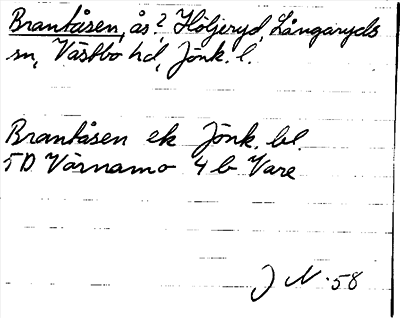 Brantåsen, ås? Höljeryd, Långaryds
sn, Västbo hd, Jönk. l.
Brantåsen ek Jönk. bl.
5D Värnamo 4 b Vare
J N. 58